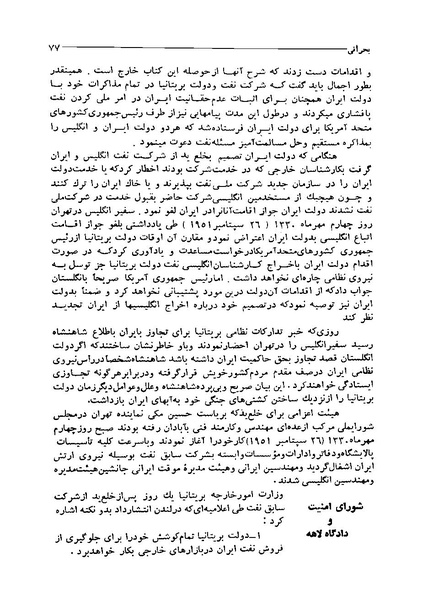 بحرانی ۷۷
و اقدامات دست زدند که شرح آنها ازحوصله این کتاب خارج است . همینقدر
بطور اجمال باید گفت که شرکت نفت ودولت بریتانیا در تمام مذاکرات خود با
دولت ایران همچنان برای اثبات عدم‌حقانیت ایران در امر ملی کردن نفت
پافشاری میکردند و درطول این مدت پیامهایی نیزاز طرف رئیس‌جمهوری‌کشورهای
متحد آمریکا برای دولت ایران فرستاده‌شد که هردو دولت ایران و انگلیس را
بمذاکره مستقیم وحل مسالمت‌آمیز مسئله‌نفت دعوت مینمود .
هنگامی که دولت ایران تصمیم بخلع ید از شرکت نفت انگلیس و ایران
گرفت بکارشناسان خارجی که در خدمت‌شرکت بودند اخطار کردکه یا خدمت‌دولت
ایران را در سازمان جدید شرکت ملی‌نفت بپذیرند و یا خاك ایران را ترك کنند
و چون هیچیك از مستخدمین انگلیسی‌شرکت حاضر بقبول خدمت در شرکت‌ملی
نفت نشدند دولت ایران جواز اقامت‌آنانرادر ایران لغو نمود . سفیر انگلیس درتهران
روز چهارم مهرماه ۱۳۳۰ ( ۲۶ سپتامبر ۱۹۵۱ ) طی یادداشتی بلغو جواز اقامت
اتباع انگلیسی بدولت ایران اعتراض نمودو مقارن آن اوقات دولت بریتانیا ازرئیس
جمهوری کشورهای‌متحدآمریکادرخواست‌مساعدت و یادآوری کردکه در صورت
اقدام دولت ایران باخراج کارشناسان‌انگلیسی نفت دولت بریتانیا جز توسل به
نیروی نظامی چاره‌ای نخواهد داشت . امارئیس جمهوری آمریکا صریحاً بانگلستان
جواب دادکه از اقدامات آن‌دولت دراین مورد پشتیبانی نخواهد کرد و ضمناً بدولت
ایران نیز توصیه نمودکه درتصمیم خود درباره اخراج انگلیسیها از ایران تجدید
نظر کند
روزی‌که خبر تدارکات نظامی بریتانیا برای تجاوز بایران باطلاع شاهنشاه
رسید سفیرانگلیس را درتهران احضارنمودند وباو خاطرنشان ساختندکه اگردولت
انگلستان قصد تجاوز بحق حاکمیت ایران داشته باشد شاهنشاه‌شخصادرراس‌نیروی
نظامی ایران درصف مقدم مردم‌کشورخویش قرارگرفته ودربرابرهرگونه تجاوزی
ایستادگی خواهندکرد. این بیان صریح وبی‌پرده‌شاهنشاه وعلل‌وعوامل‌دیگرزمان دولت
بریتانیا را ازنزدیك ساختن کشتی‌های جنگی خود به‌آبهای ایران بازداشت.
هیئت اعزامی برای خلع‌یدکه بریاست حسین مکی نماینده تهران درمجلس
شورایملی مرکب ازعده‌ای مهندس وکارمند فنی بآبادان رفته بودند صبح روزچهارم
مهرماه۱۳۳۰ (۲۶ سپتامبر ۱۹۵۱) کارخودرا آغاز نمودند وباسرعت کلیه تاسیسات
پالایشگاه‌ودفاتروادارات‌ومؤسسات‌وابسته بشرکت سابق نفت بوسیله نیروی ارتش
ایران اشغال‌گردید ومهندسین ایرانی وهیئت مدیرهٔ موقت ایرانی جانشین‌هیئت‌مدیره
ومهندسین انگلیسی شدند.
شورای امنیت
و
دادگاه لاهه
وزارت امورخارجه بریتانیا یك روز پس‌ازخلع‌ید ازشرکت
سابق نفت طی اعلامیه‌ای‌که درلندن انتشارداد بدو نکته اشاره
کرد :
۱ـ دولت بریتانیا تمام‌کوشش خودرا برای جلوگیری از
فروش نفت ایران دربازارهای خارجی بکار خواهدبرد .